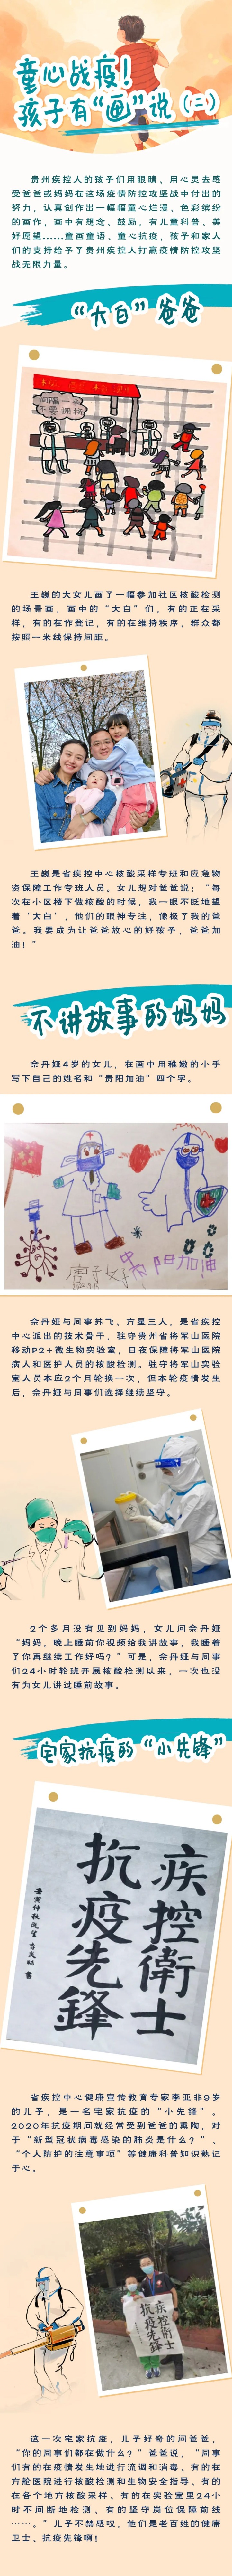 童心战疫！
孩子有“画”说（二）
贵州疾控人的孩子们用眼睛、用心灵去感
受爸爸或妈妈在这场疫情防控攻坚战中付出的
努力，认真创作出一幅幅童心烂漫、色彩缤纷
的画作，画中有想念、鼓励，有儿童科普、美
好愿望......童画童语、童心抗疫，孩子和家人
们的支持给予了贵州疾控人打赢疫情防控攻坚
战无限力量。
“大白”爸爸
间隔一米
不要拥挤
王巍的大女儿画了一幅参加社区核酸检测
的场景画，画中的“大白”们，有的正在采
样，有的在作登记，有的在维持秩序，群众都
按照一米线保持间距。
王巍是省疾控中心核酸采样专班和应急物
资保障工作专班人员。女儿想对爸爸说：“每
次在小区楼下做核酸的时候，我一眼不眨地望
着‘大白’，他们的眼神专注，像极了我的爸
爸。我要成为让爸爸放心的好孩子，爸爸加
油！”
不讲故事的妈妈
佘丹娅4岁的女儿，在画中用稚嫩的小手
写下自己的姓名和“贵阳加油”四个字。
贵阳加油
佘丹娅与同事苏飞、方星三人，是省疾控
中心派出的技术骨干，驻守贵州省将军山医院
移动P2+微生物实验室，日夜保障将军山医院
病人和医护人员的核酸检测。驻守将军山实验
室人员本应2个月轮换一次，但本轮疫情发生
后，佘丹娅与同事们选择继续坚守。
2个多月没有见到妈妈，女儿问佘丹娅
“妈妈，晚上睡前你视频给我讲故事，我睡着
了你再继续工作好吗？”可是，佘丹娅与同事
们24小时轮班开展核酸检测以来，一次也没
有为女儿讲过睡前故事。
宅家抗疫的“小先锋”
疾控衛士
抗疫先鋒
省疾控中心健康宣传教育专家李亚非9岁
的儿子，是一名宅家抗疫的“小先锋”。
2020年抗疫期间就经常受到爸爸的熏陶，对
于“新型冠状病毒感染的肺炎是什么？”、
“个人防护的注意事项”等健康科普知识熟记
于心。
疾控衛士
抗疫先鋒
这一次宅家抗疫，儿子好奇的问爸爸，
“你的同事们都在做什么？”爸爸说，“同事
们有的在疫情发生地进行流调和消毒、有的在
方舱医院进行核酸检测和生物安全指导、有的
在各个地方核酸采样、有的在实验室里24小
时不间断地检测、有的坚守岗位保障前线
……。”儿子不禁感叹，他们是老百姓的健康
卫士、抗疫先锋啊！